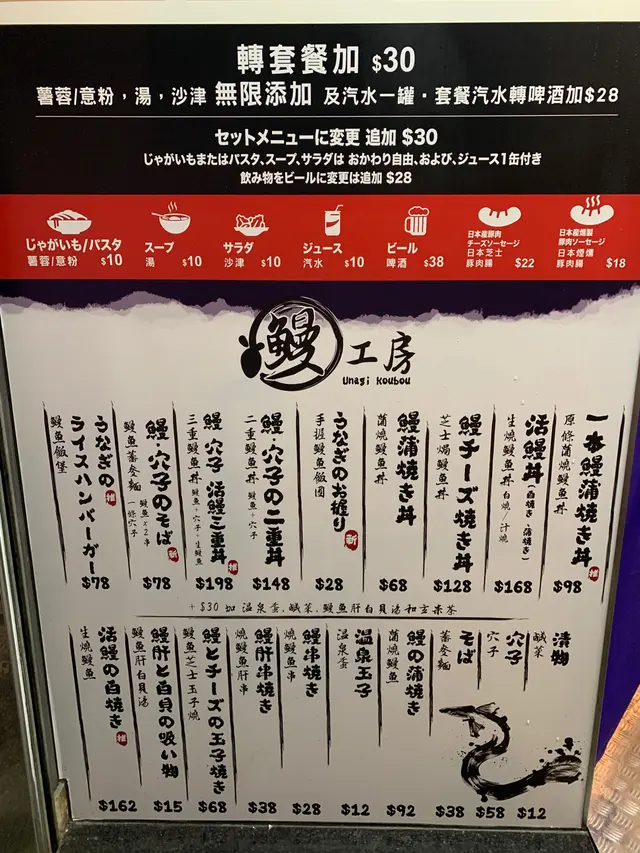 轉套餐加 $30
薯蓉/意粉，湯，沙津 無限添加 及汽水一罐・套餐汽水轉啤酒加$28
セットメニューに変更 追加 $30
じゃがいもまたはパスタ、スープ、サラダは おかわり自由、および、ジュース1缶付き
飲み物をビールに変更は追加 $28
じゃがいも/パスタ
薯蓉/意粉 $10
スープ
湯 $10
サラダ
沙津 $10
ジュース
汽水 $10
ビール
啤酒 $38
日本産豚肉
チーズソーセージ
日本芝士
豚肉腸 $22
日本産燻製
豚肉ソーセージ
日本煙燻
豚肉腸 $18
鰻工房
Unagi Koubou
一本鰻蒲焼き丼 推
原條蒲燒鰻魚丼
$98
活鰻丼(白焼き・蒲焼き)
生燒鰻魚丼 白燒/汁燒
$168
鰻チーズ焼き丼
芝士焗鰻魚丼
$128
鰻蒲焼き丼
蒲燒鰻魚丼
$68
うなぎのお握り 新
手握鰻魚飯團
$28
鰻・穴子の二重丼
二重鰻魚丼 鰻魚+穴子
$148
鰻 穴子 活鰻三重丼 推
三重鰻魚丼 鰻魚+穴子+生鰻魚
$198
鰻・穴子のそば 新
鰻魚蕎麥麵 鰻魚x2串 一條穴子
$78
うなぎのライスハンバーガー 推
鰻魚飯堡
$78
+$30 加溫泉蛋,鹹菜,鰻魚肝白貝湯和玄米茶
漬物
鹹菜
$12
穴子
穴子
$58
そば
蕎麥麵
$38
鰻の蒲焼き
蒲燒鰻魚
$92
温泉玉子
溫泉蛋
$12
鰻串焼き
燒鰻魚串
$28
鰻肝串焼き
燒鰻魚肝串
$38
鰻とチーズの玉子焼き
鰻魚芝士玉子燒
$68
鰻肝と白貝の吸い物
鰻魚肝白貝湯
$15
活鰻の白焼き 推
生燒鰻魚
$162